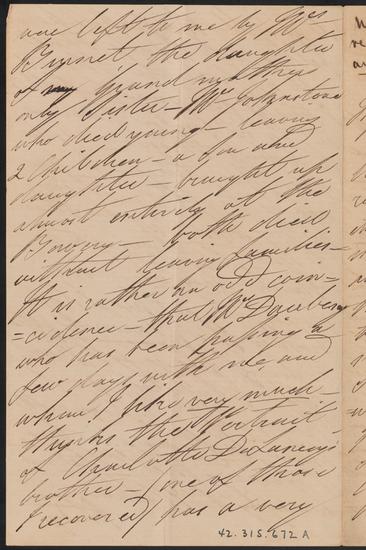 are left to me by Mrs
Burnet, the daughter
of my grand mothers
only Sister – Mrs Johnstone
who died young – leaving
2 Children – a son and
daughter – brought up
almost entirely at the
Bowery – both died
without leaving families –
It is rather an odd coin=
=cidence – that Mrs
who has been passing a
few days with me, and
whom I like very much –
thinks the Portrait
of Charlotte DeLancey's
brother – one of those
recovered, has a very
42.315.672A